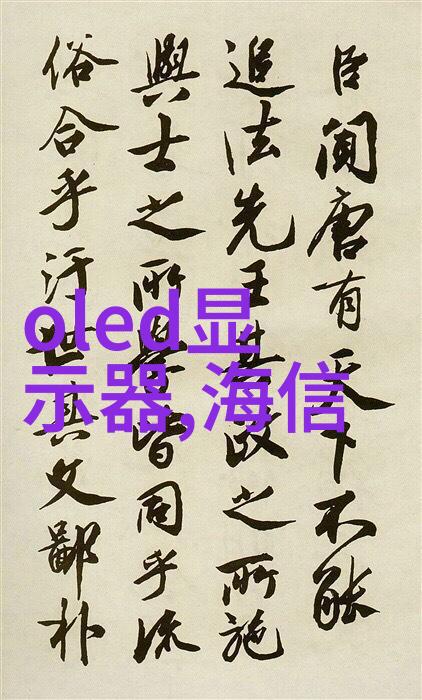 臣聞唐有天下不能
追法先王其政之所施
與士之所學皆同乎流
俗合乎汙世其文鄙朴
oled显
示器,海信